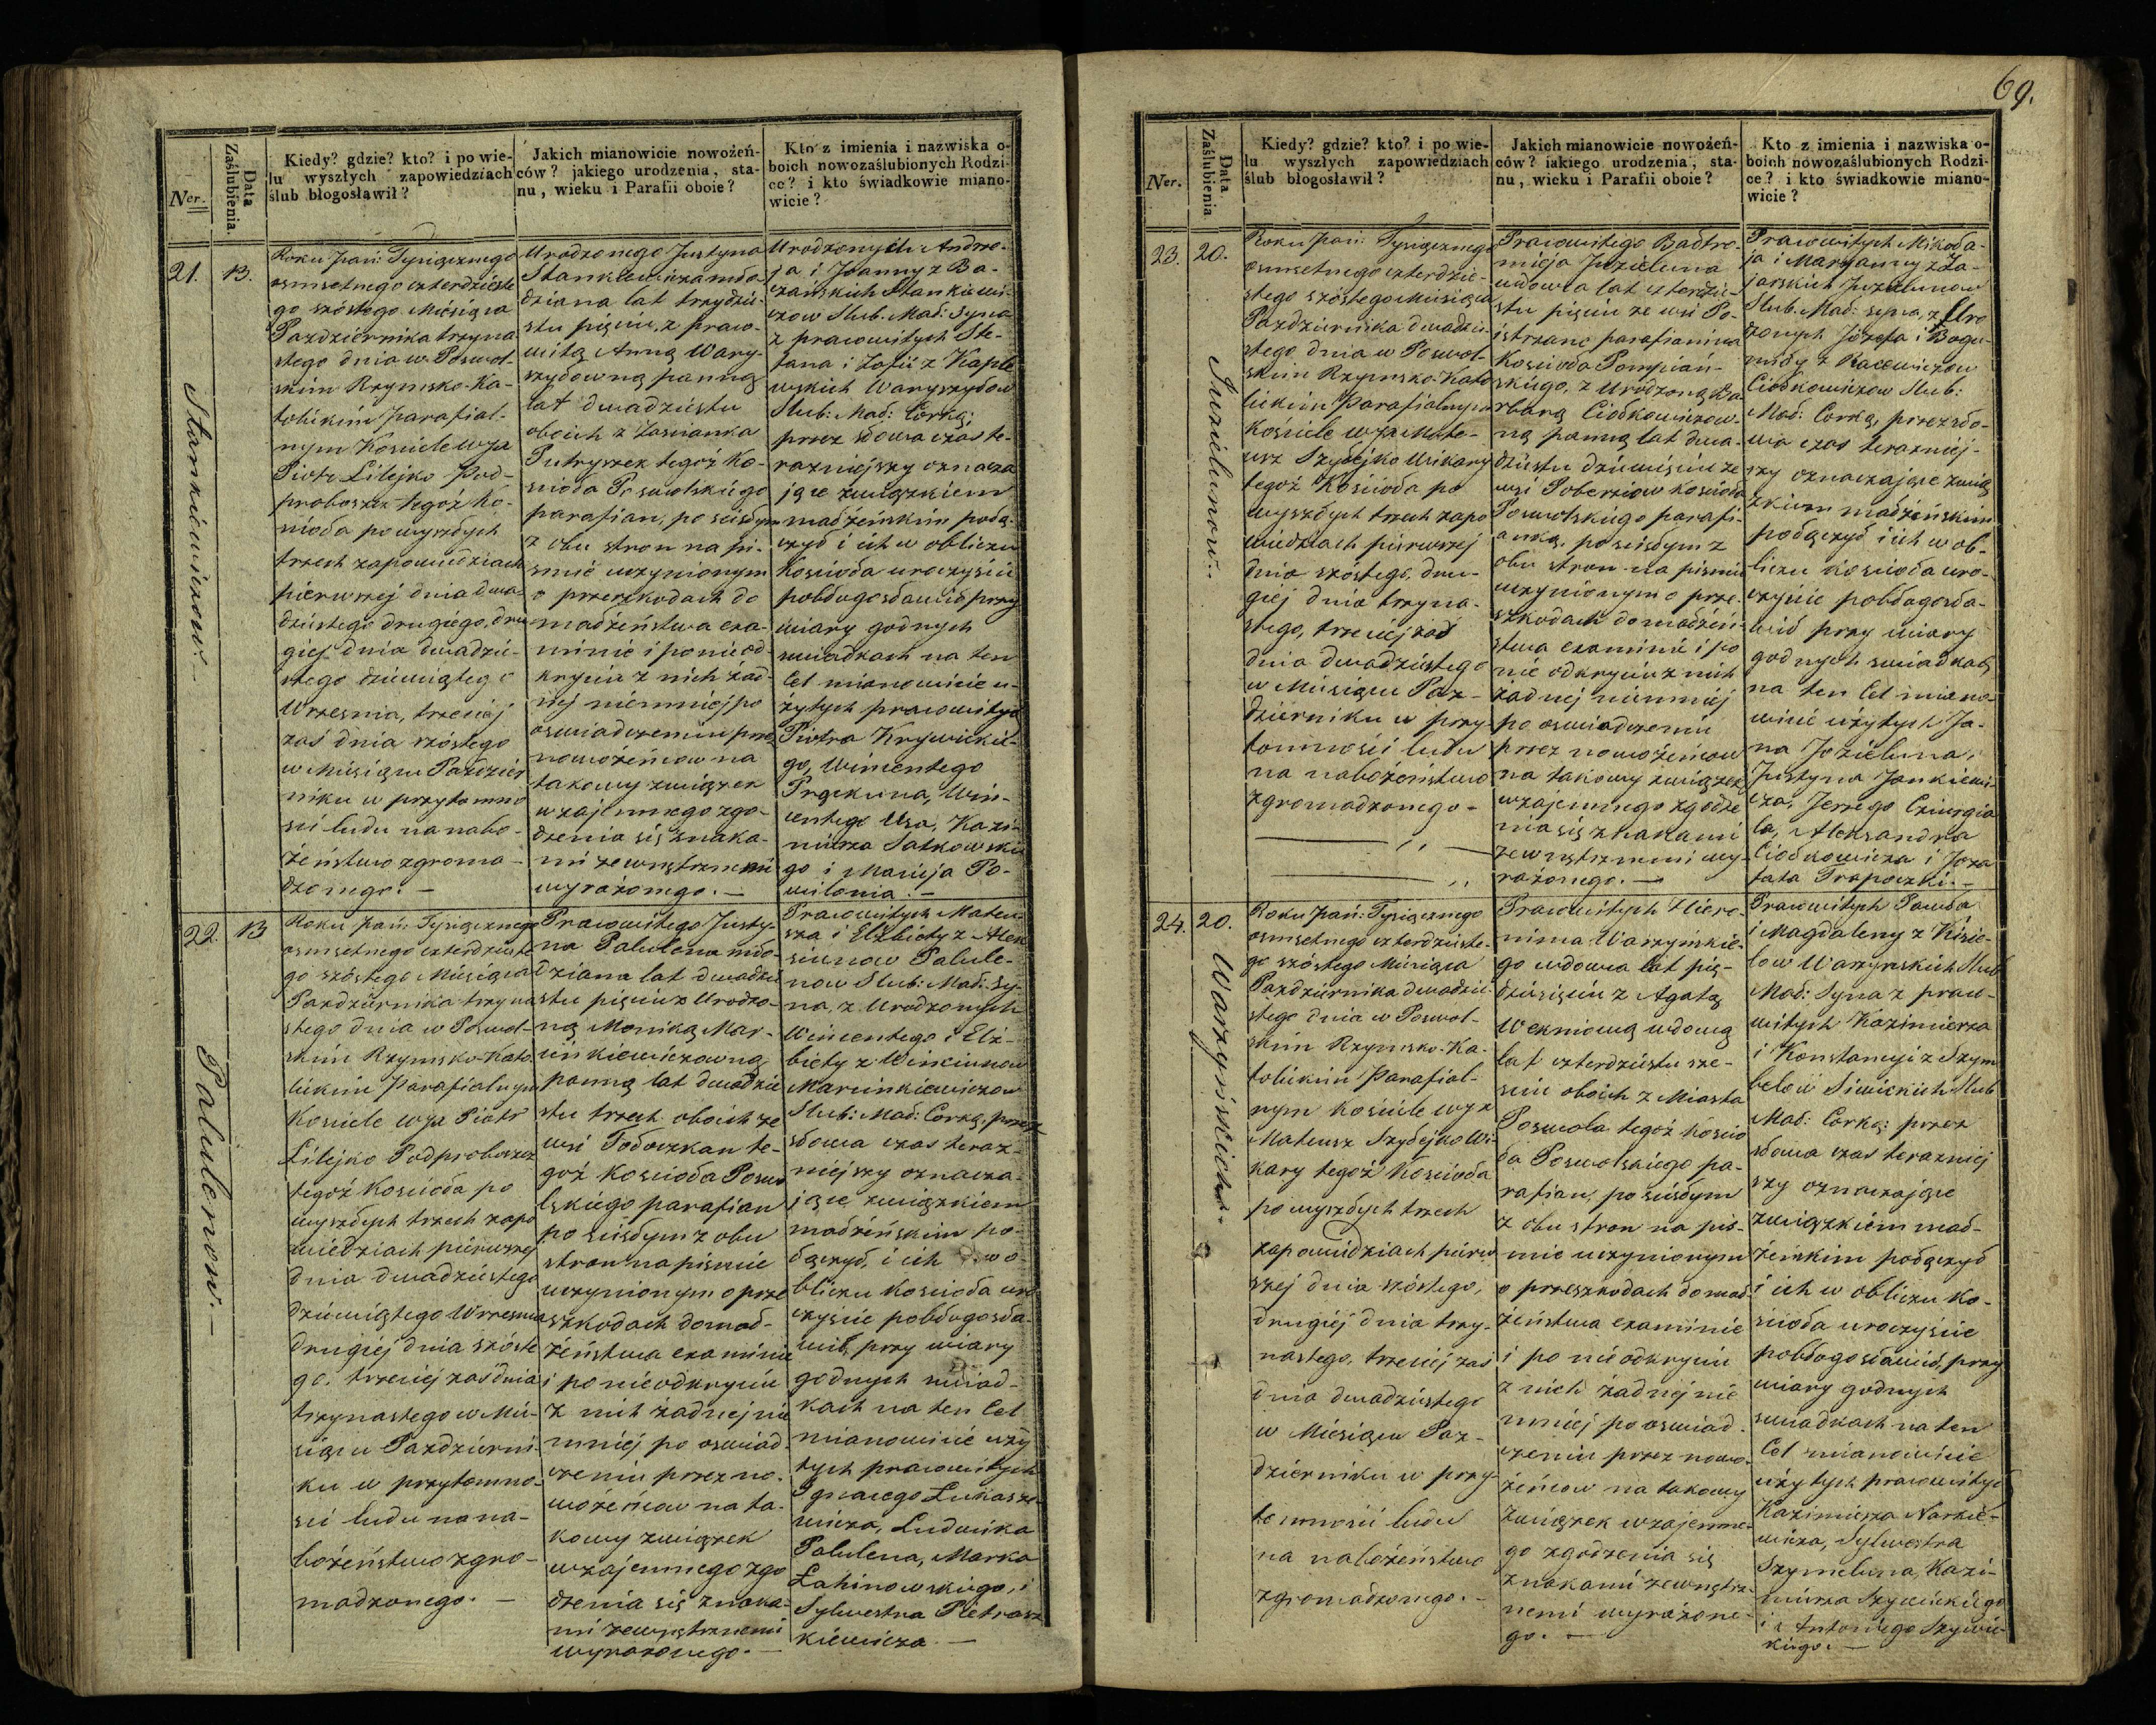 69.
Ner.
Data
Zaślubienia.
Kiedy? gdzie? kto? i po wie-
lu wyszłych zapowiedziach
ślub błogosławił?
Jakich mianowicie nowożeń-
ców? jakiego urodzenia, sta-
nu, wieku i Parafii oboie?
Kto z imienia i nazwiska o-
boich nowozaślubionych Rodzi-
ce? i kto świadkowie miano-
wicie?
21.
13.
Stankiewiczow.
Roku pań: Tysiącznego
osmsetnego czterdzieste
go szóstego Miesiąca
Pazdziernika trzyna
stego dnia w Poswol-
skim Rzymsko-Ka-
tolickim Parafial-
nym Kosciele wJX
Piotr Lilejko Pod-
proboszcz tegoż Ko-
scioła po wyszłych
trzech zapowiedziach
pierwszej dnia dwa-
dziestego drugiego, dru
giej dnia dwadzie-
stego dziewiątego
Wrzesnia, trzeciej
zaś dnia szóstego
w Miesiącu Paździer
niku w przytomno
sci ludu na nabo-
żeństwo zgroma-
dzonego. —
Urodzonego Justyna
Stankiewicza mło-
dziana lat trzydzie-
stu pięciu, z praw-
witą Anną Wary-
szydowną panną
lat dwadziestu
oboich z Zascianka
Putryszek tegoż Ko-
scioła Poswolskiego
parafian, po scisłym
z obu stron na pi-
śmie uczynionym
o przeszkodach do
małżeństwa exa-
minie i po nieod-
kryciu z nich żad-
nej niemniej po
oswiadczeniu przez
nowożeńcow na
takowy związek
wzajemnego zgo-
dzenia się znaka-
mi zewnętrznemi
wyrażonego. —
Urodzonych Andrze-
ja i Joanny z Ba-
czańskich Stankiewi-
czow Slub. Mał: Syna
z prawowitych Ste-
fana i Zofii z Kaple
wskich Waryszydow
Slub: Mał: Corką;
przez słowa czas te-
razniejszy oznacza
jące związkiem
małżeńskim połą-
czył i ich w obliczu
Kościoła uroczyscie
pobłogosławił przy
wiary godnych
swiadkach na ten
Cel mianowicie u-
żytych prawowitych
Piotra Krywickie-
go, Wincentego
Prąckuna, Win-
centego Usa, Kazi-
mierza Satkowskie
go i Macieja Po-
wilonia. —
22.
13
Palulenow. —
Roku pań: Tysiącznego
osmsetnego czterdzieste
go szóstego Miesiąca
Pazdziernika trzyna
stego dnia w Poswol-
skim Rzymsko-Kato
lickim Parafialnym
Kosciele wJX Piotr
Lilejko Podproboszcz
tegoż Kościoła po
wyszłych trzech zapo
wiedziach pierwszej
dnia dwadziestego
dziewiątego Wrzesnia
drugiej dnia szóste
go, trzeciej zaś dnia
trzynastego w Mie-
siącu Pazdzierni-
ku w przytomno-
sci ludu na na-
bożeństwo zgro-
madzonego. —
Prawowitego Justy-
na Palulena mło-
dziana lat dwadzie
stu pięciu z Urodzo-
ną Moniką Mar-
cinkiewiczowną
panną lat dwadzie
stu trzech oboich ze
wsi Tołoczkan te-
goż Kościoła Poswo
lskiego parafian
po scisłym z obu
stron na piśmie
uczynionym o prze
szkodach do mał-
żeństwa examinie
i po nieodkryciu
z nich żadnej nie
mniej po oswiad-
czeniu przez no-
wożeńcow na ta-
kowy związek
wzajemnego zgo
dzenia się znaka-
mi zewnętrznemi
wyrażonego. —
Prawowitych Mateu-
sza i Elżbiety z Alek
siunow Palule-
now Slub: Mał: Sy-
na, z Urodzonych
Wincentego i Elż-
biety z Winciunow
Marcinkiewiczow
Slub: Mał: Corką, przez
słowa czas teraz-
niejszy oznacza-
jące związkiem
małżeńskim po-
łączył, i ich w o-
bliczu Kościoła uro
czyscie pobłogosła-
wił, przy wiary
godnych swiad-
kach na ten Cel
mianowicie uży
tych prawowitych
Ignacego Łukasze-
wicza, Ludwika
Palulena, Marka
Łahinowskiego, i
Sylwestra Pietrasz
kiewicza. —
Ner.
Data
Zaślubienia
Kiedy? gdzie? kto? i po wie-
lu wyszłych zapowiedziach
ślub błogosławił?
Jakich mianowicie nowożeń-
ców? iakiego urodzenia, sta-
nu, wieku i Parafii oboie?
Kto z imienia i nazwiska o-
boich nowozaślubionych Rodzi-
ce? i kto świadkowie miano-
wicie?
23.
20.
Juzielunow.
Roku pań: Tysiącznego
osmsetnego czterdzie-
stego szóstego Miesiąca
Pazdziernika dwadzie-
stego dnia w Poswol-
skim Rzymsko-Kato
lickim Parafialnym
Kosciele wJX Mate-
usz Szydejko Wikary
tegoż Kościoła po
wyszłych trzech zapo
wiedziach pierwszej
dnia szóstego, dru-
giej dnia trzyna-
stego, trzeciej zaś
dnia dwadziestego
w Miesiącu Paz-
dzierniku w przy-
tomności ludu
na nabożeństwo
zgromadzonego —
Prawowitego Bałtro-
mieja Juzieluna
wdowca lat czterdzie-
stu pięciu ze wsi Po-
istrzano parafianina
Kościoła Pompiań-
skiego, z Urodzoną Ba
rbarą Ciołkowiczow-
ną panną lat dwa-
dziestu dziewięciu ze
wsi Toberziow Kościoła
Poswolskiego parafi-
anką, po scisłym z
obu stron na piśmie
uczynionym o prze-
szkodach do małżeń-
stwa examinie i po
nieodkryciu z nich
żadnej niemniej
po oswiadczeniu
przez nowożeńcow
na takowy związek
wzajemnego zgodze
nia się znakami
zewnętrznemi wy-
rażonego. —
Prawowitych Mikoła-
ja i Maryanny z Za-
jarskich Juzielunow
Slub. Mał: syna, z Uro
dzonych Józefa i Bogu-
miły z Racewiczow
Ciołkowiczow Slub:
Mał: Corką, przez sło-
wa czas terazniej-
szy oznaczające zwią
zkiem małżeńskim
połączył i ich w ob-
liczu Kościoła uro-
czyscie pobłogosła-
wił przy wiary
godnych swiadkach
na ten Cel miano-
wicie użytych Ja-
na Jozieluna,
Justyna Jankiewi-
cza, Jerzego Cziurgia
la, Aleksandra
Ciołkowicza i Joza
fata Trapoczki. —
24.
20.
Warzyńskich.
Roku Pań: Tysiącznego
osmsetnego czterdzieste-
go szóstego Miesiąca
Pazdziernika dwadzie-
stego dnia w Poswol-
skim Rzymsko-Ka-
tolickim Parafial-
nym Kosciele wJX
Mateusz Szydejko Wi-
kary tegoż Kościoła
po wyszłych trzech
zapowiedziach pierw
szej dnia szóstego,
drugiej dnia trzy-
nastego, trzeciej zaś
dnia dwadziestego
w Miesiącu Paz-
dzierniku w przy-
tomności ludu
na nabożeństwo
zgromadzonego. —
Prawowitych Hiero-
nima Warzyńskie-
go wdowca lat pię-
dziesięciu z Agatą
Wekniową wdową
lat czterdziestu sze-
sciu oboich z Miasta
Poswola tegoż Kościo
ła Poswolskiego pa-
rafian, po scisłym
z obu stron na piś-
mie uczynionym
o przeszkodach do mał-
żeństwa examinie
i po nieodkryciu
z nich żadnej nie
mniej po oswiad-
czeniu przez nowo-
żeńcow na takowy
związek wzajemne-
go zgodzenia się
znakami zewnętrz-
nemi wyrażone-
go. —
Prawowitych Pawła
i Magdaleny z Kisie-
low Warzynskich Slub
Mał: Syna z praw-
witych Kazimierza
i Konstancyi z Szym
below Siwickich Slub
Mał: Corką; przez
słowa czas terazniej
szy oznaczające
związkiem mał-
żeńskim połączył
i ich w obliczu Ko-
scioła uroczyscie
pobłogosławił, przy
wiary godnych
swiadkach na ten
Cel mianowicie
użytych prawowitych
Kazimierza Narkie-
wicza, Sylwestra
Szymeluna, Kazi-
mierza Szywickiego
i Antoniego Szywic-
kiego. —